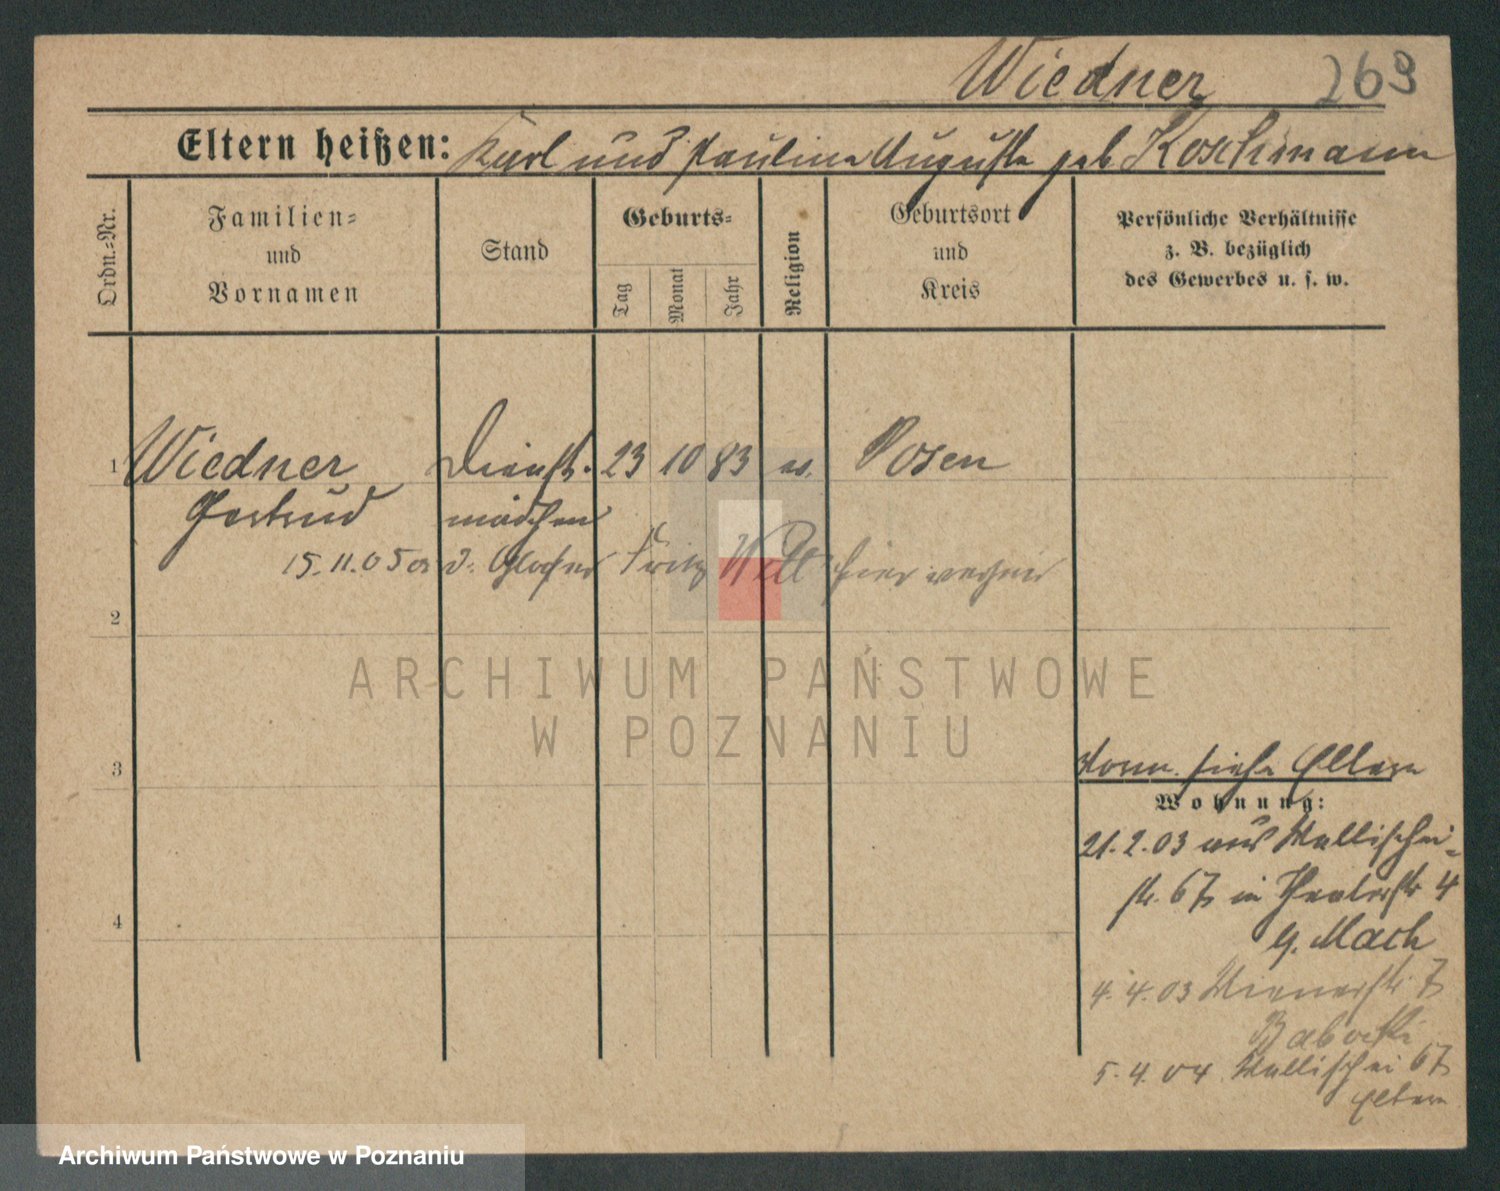 Wiedner 269
Eltern heißen: Karl und Pauline Auguste geb. Koschmann
Ordn.-Nr.
Familien-
und
Vornamen
Stand
Geburts-
Tag
Monat
Jahr
Religion
Geburtsort
und
Kreis
Persönliche Verhältnisse
z. B. bezüglich
des Gewerbes u. s. w.
1 Wiedner Dienst- 23 10 83 ev. Posen
Gertrud mädchen
15.11.05 d. Glaser Fritz hier
2
ARCHIWUM PAŃSTWOWE
W POZNANIU
3
siehe Eltern
Wohnung:
21.2.03 aus Wallischei-
str. 67 in Theaterstr 4
b. Mach
4
4.4.03 Wienerstr. 7
5.4.04 Wallischei 67
Eltern
Archiwum Państwowe w Poznaniu